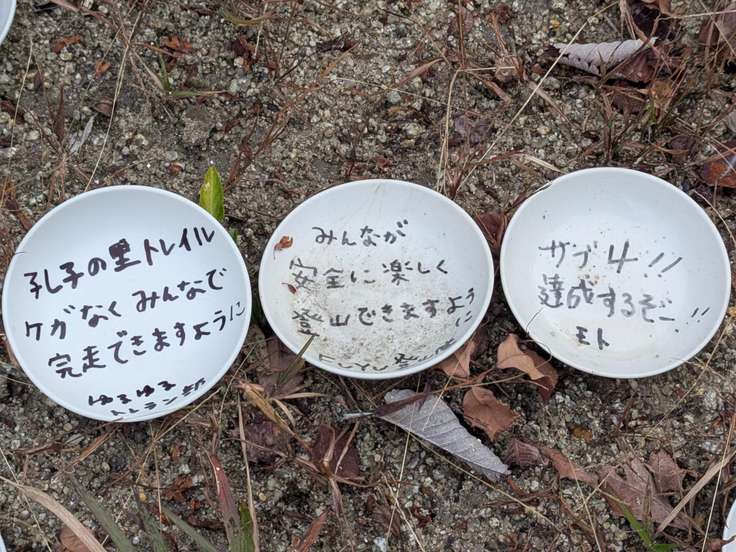 孔子の里トレイル
ケガなくみんなで
完走できますように
ゆるゆる
トレラン部
みんなが
安全に楽しく
登山できますよう
に
サブ4!!
達成するぞー!!
モト